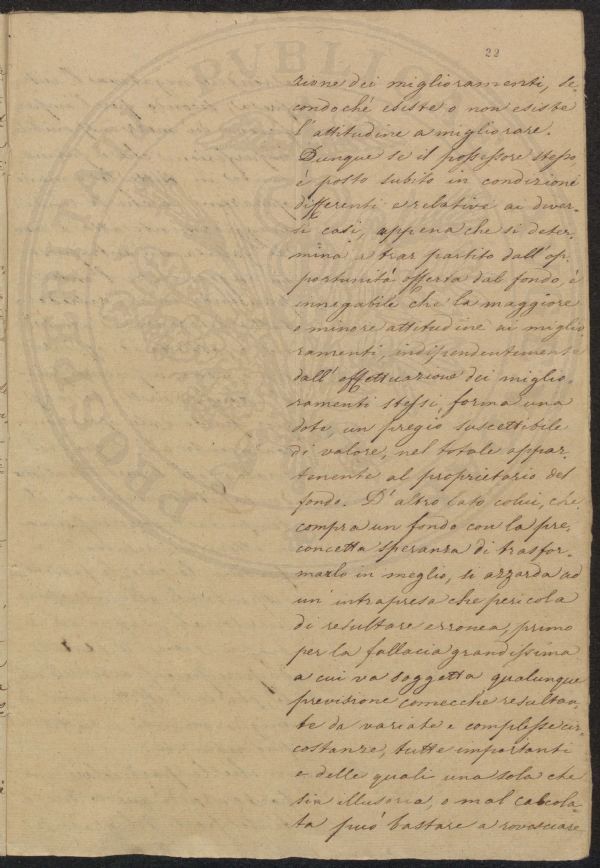 22
zione dei miglioramenti, se-
condochè esiste o non esiste
l'attitudine a migliorare.
Dunque se il possessore stesso
è posto subito in condizioni
differenti e relative ai diver-
si casi, appena che si deter-
mina a trar partito dall'op-
portunità offerta dal fondo, è
innegabile che la maggiore
o minore attitudine ai miglio
ramenti, indipendentemente
dall'effettuazione dei miglio-
ramenti stessi, forma una
dote, un pregio suscettibile
di valore, nel totale appar-
tenente al proprietario del
fondo. D'altro lato colui, che
compra un fondo con la pre-
concetta speranza di trasfor-
marlo in meglio, si azzarda ad
un'intrapresa che pericola
di resultare erronea, primo
per la fallacia grandissima
a cui va soggetta qualunque
previsione comecchè resultan-
te da variate e complesse cir-
costanze, tutte importanti
e delle quali una sola che
sia illusoria, o mal calcola-
ta può bastare a rovesciare
PUBLI